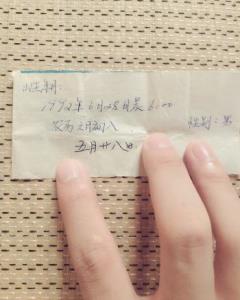 出生年月:
1992年6月28日晨6:00
农历五月廿八
性别: 男
五月廿八日